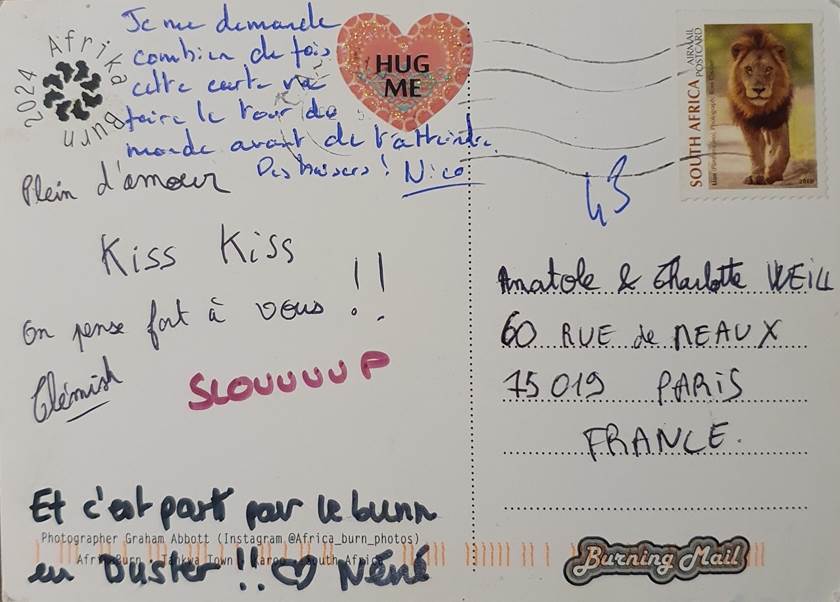 2024 Afrika Burn
Je me demande
combien de fois
cette carte va
faire le tour du
monde avant de t'atteindre.
Des baisers ! Nico
HUG
ME
AIRMAIL
POSTCARD
SOUTH AFRICA
43
Plein d'amour
Kiss Kiss
On pense fort à vous !!
Clémish
SLOUUUUP
Anatole & Charlotte WEILL
60 RUE de MEAUX
75019 PARIS
FRANCE.
Et c'est parti pour le burn
Photographer Graham Abbott (Instagram @Africa_burn_photos)
AfrikaBurn Tankwa Town Karoo South Africa
en Duster !! ♡ Néné
Burning Mail